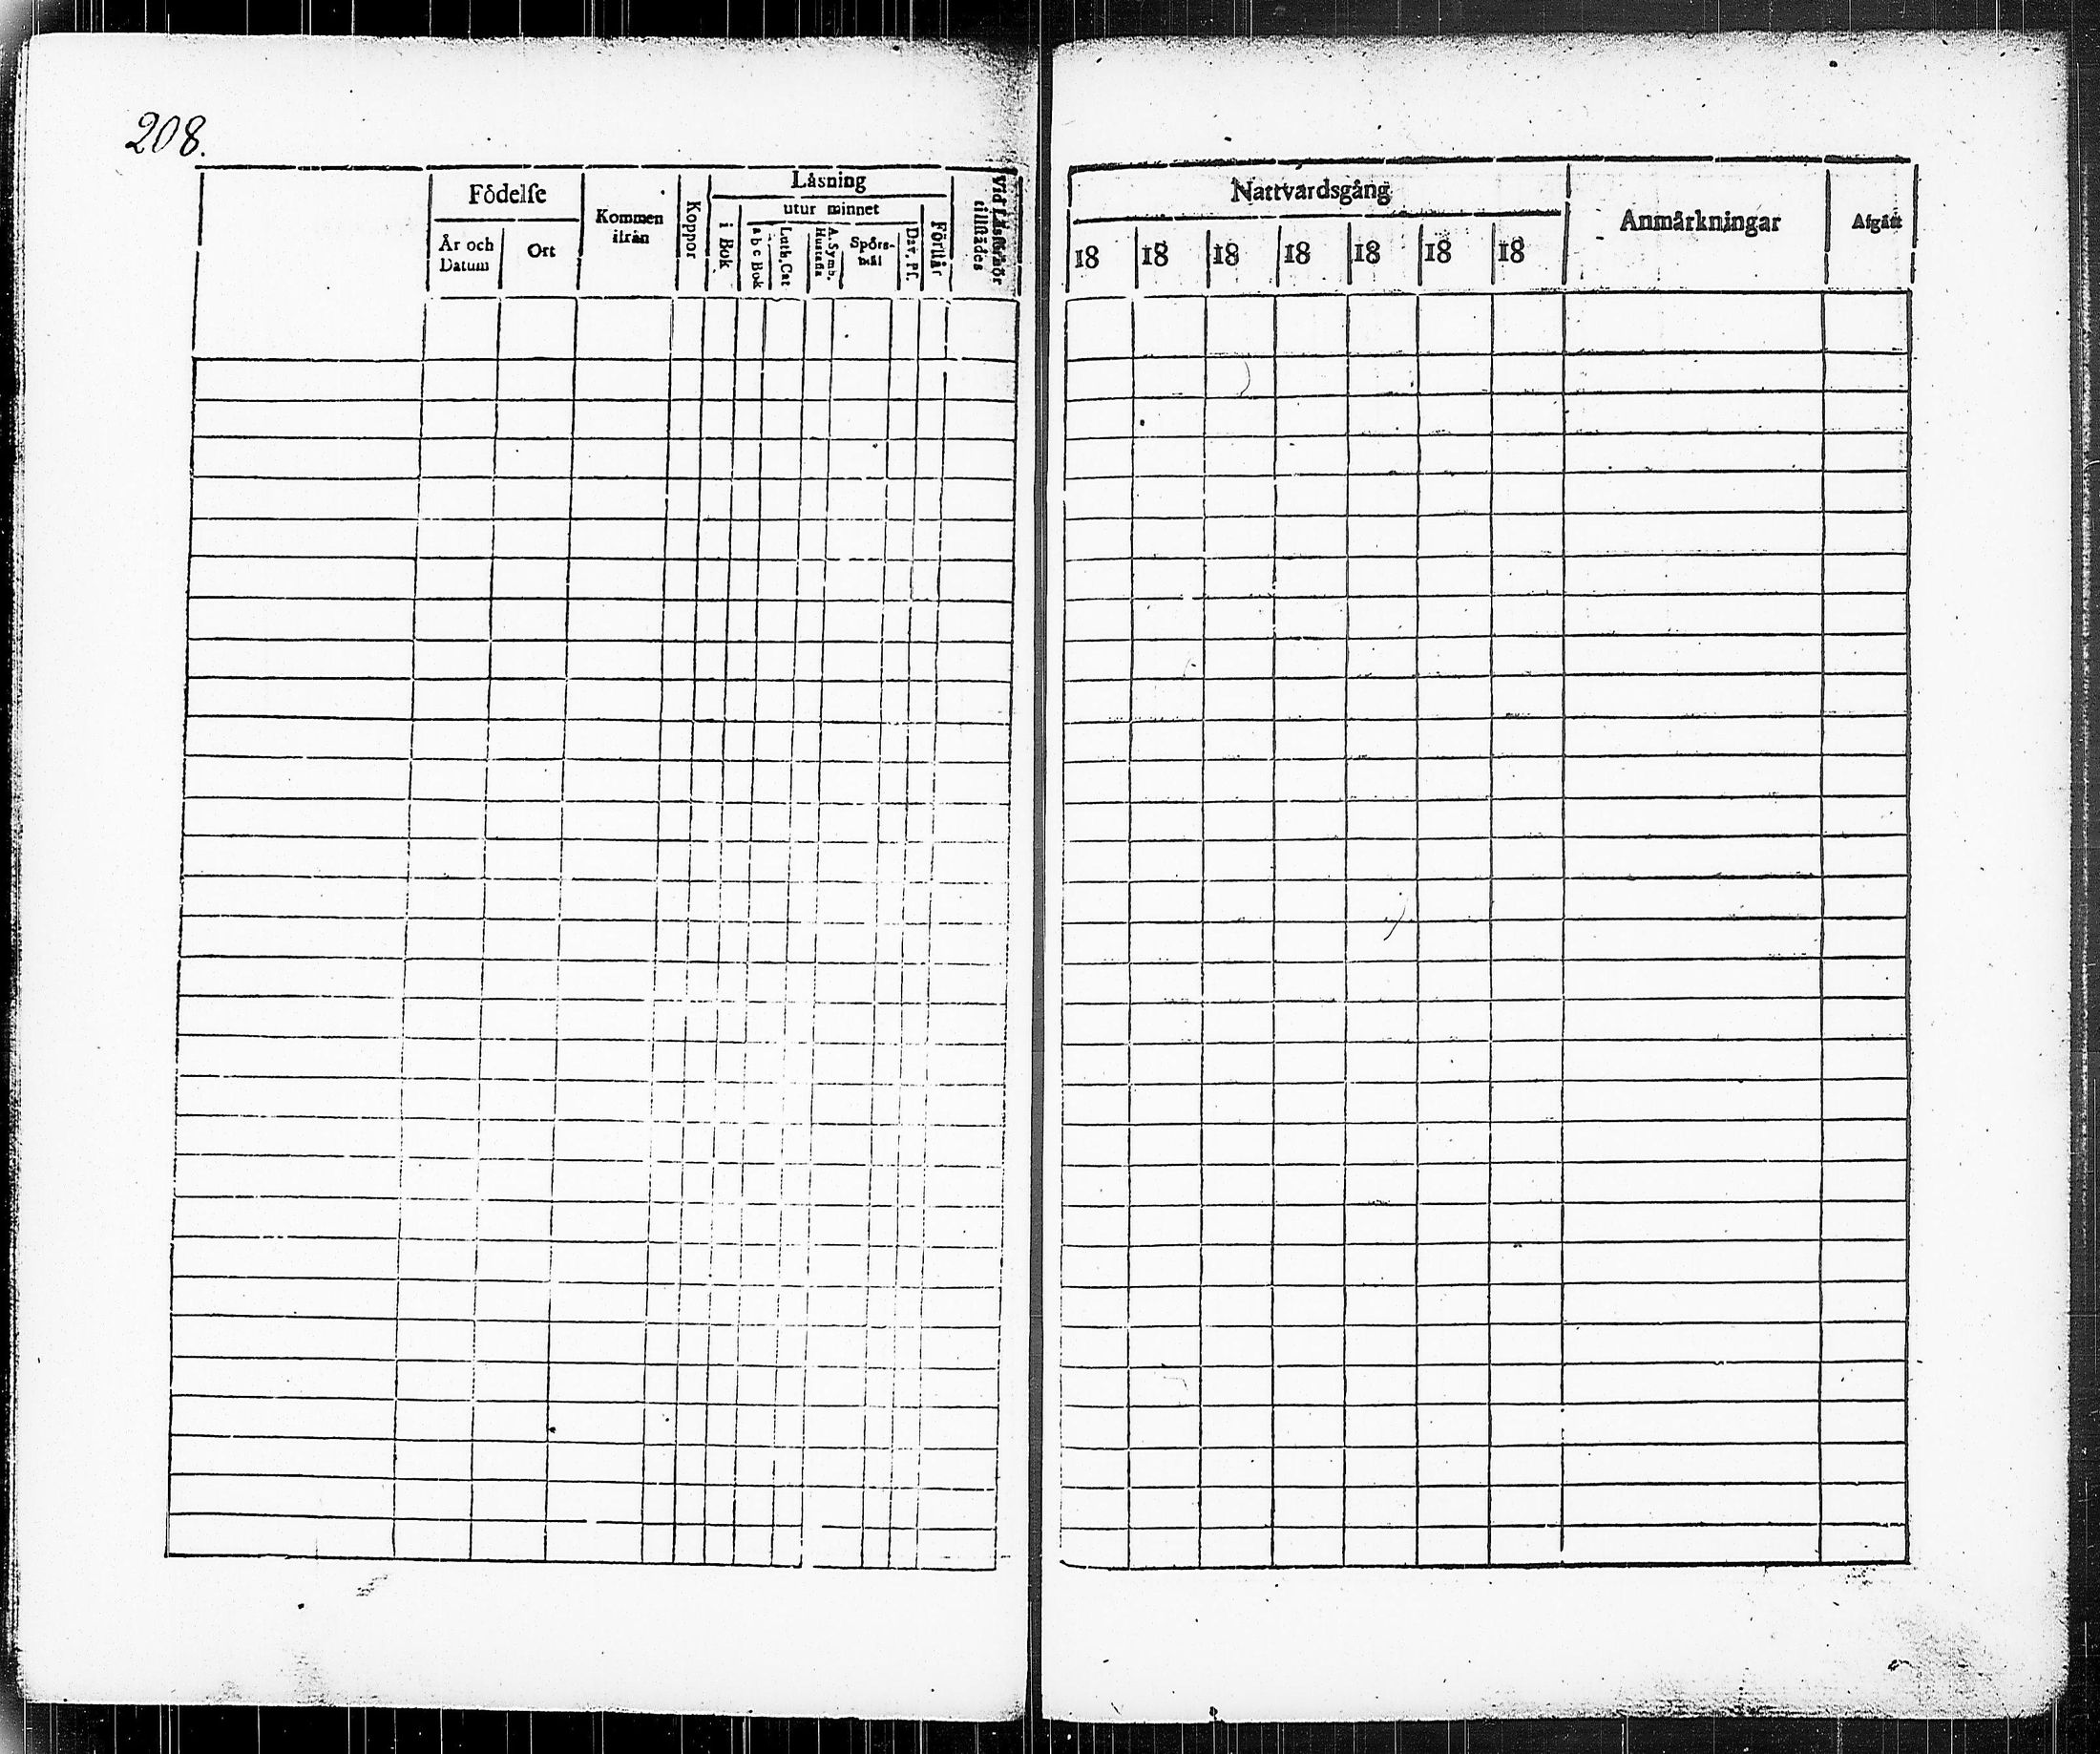 208.
Födelse
År och Datum
Ort
Kommen ifrån
Koppor
Läsning
i Bok
utur minnet
a b c Bok
Luth. Cat
Hustafla
A. Symb.
Spörs-
mål
Dav. Ps.
Förstår
Vid Läsförhör
tillstädes
Nattvardsgång
18 18 18 18 18 18 18
Anmärkningar
Afgått